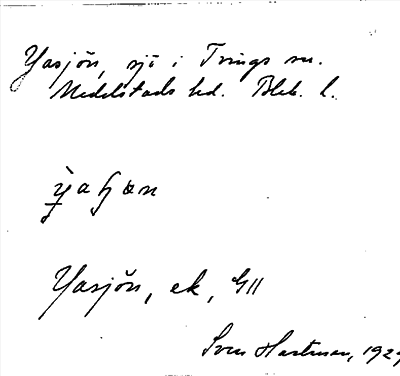 Yasjön, sjö i Tvings sn.
Medelstads hd. Blek. l.
Yasjön, ek, 4 11
Sven Hartman, 192